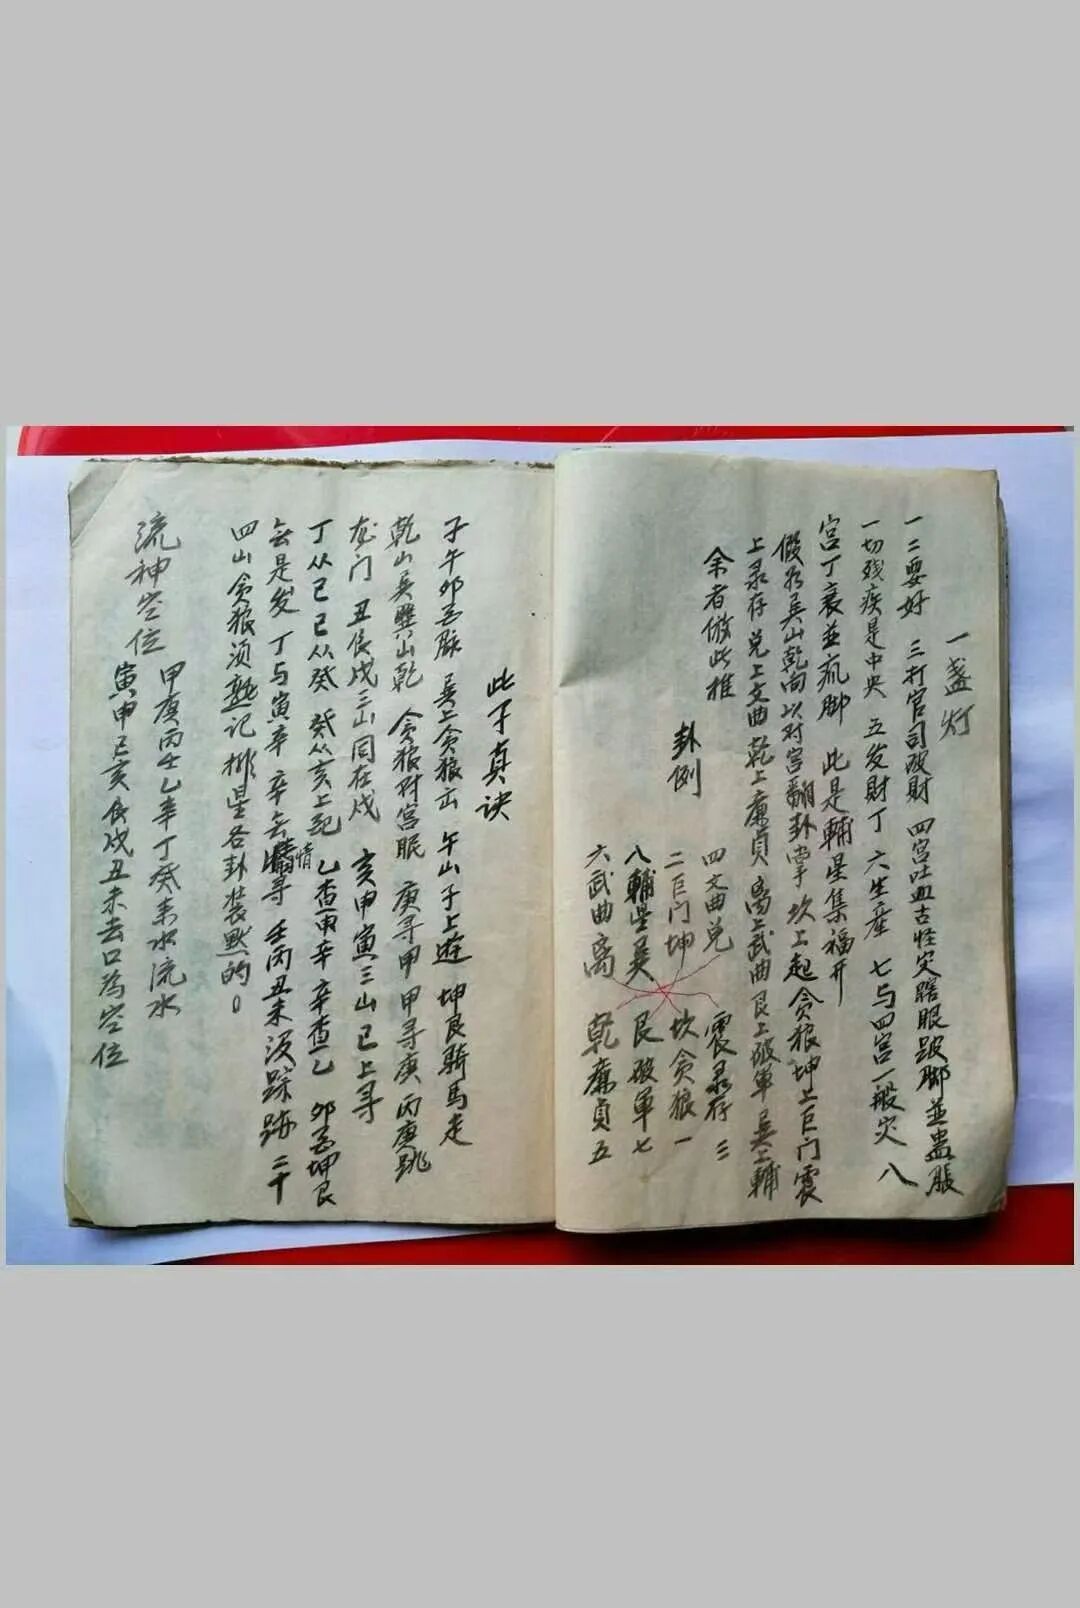 一盏灯
一二要好 三打官司破財 四宫吐血古怪灾瞎眼跛脚並蛊脹
一切残疾是中央 五发財丁 六生產 七与四宫一般灾 八
宫丁衰並疯脚 此是輔星集福开
假如巽山乾向以对宫翻卦掌坎上起貪狼坤上巨门震
上录存兑上文曲乾上廉貞离上武曲艮上破軍巽上輔
余者仿此推
卦例
四文曲兑 震录存三
二巨门坤 坎贪狼一
八輔星巽 艮破軍七
六武曲离 乾廉貞五
此子真诀
子午卯酉脉 巽上貪狼出 午山子上遊 坤艮騎馬走
乾山巽巽山乾 貪狼对宫眠 庚寻甲 甲寻庚丙庚跳
龙门 丑辰戌三山同在戌 亥申寅三山巳上寻
丁从巳巳从癸 癸从亥上起 乙查辛辛查乙 卯酉坤艮
是发 丁与寅辛 辛去情寻 壬丙丑未须踪跡二十
四山貪狼须熟记排星各卦装默的。
流神空位
甲庚丙壬乙辛丁癸来水流水
寅申巳亥辰戌丑未去口为空位